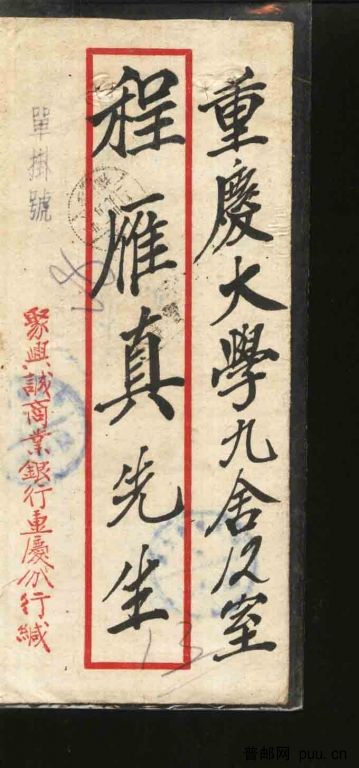 重慶大學九舍12室
程雁真先生
單掛號
聚興誠商業銀行重慶分行緘
13
普邮网 puu.cn